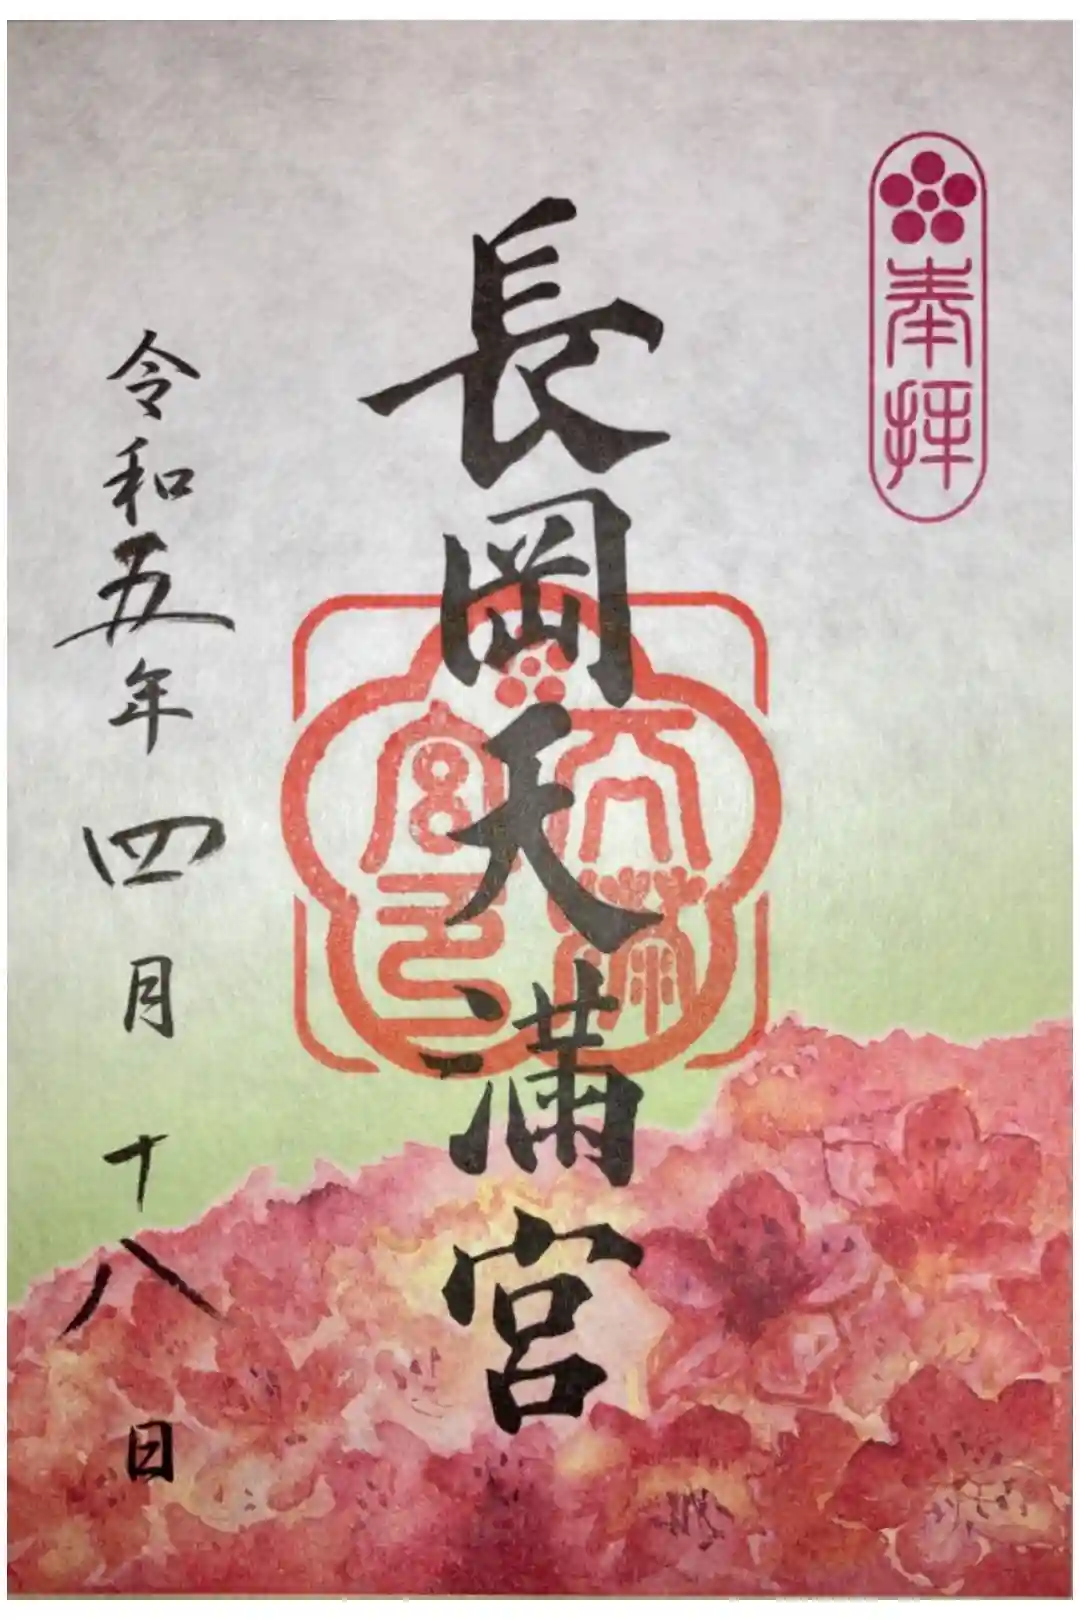 奉拝
長岡天満宮
天満宮印
令和五年四月十八日